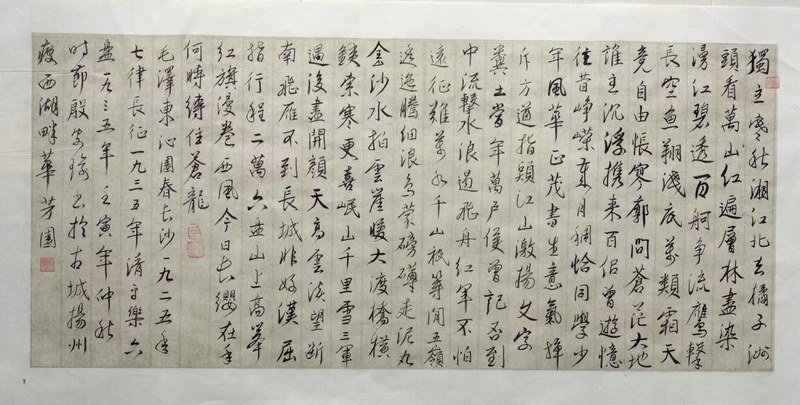 獨立寒秋湘江北去橘子洲
頭看萬山紅遍層林盡染
漫江碧透百舸争流鷹擊
長空魚翔淺底萬類霜天
竞自由悵寥廓問蒼茫大地
誰主沉浮携来百侣曾遊憶
往昔崢嶸歲月稠恰同學少
年風華正茂書生意氣揮
斥方遒指點江山激揚文字
糞土當年萬户侯曾記否到
中流擊水浪遏飛舟紅軍不怕
遠征難萬水千山衹等閒五嶺
逶迤騰细浪烏蒙磅礴走泥丸
金沙水拍雲崖暖大渡橋橫
鐵索寒更喜岷山千里雪三軍
過後盡開顔天高雲淡望斷
南飛雁不到長城非好漢屈
指行程二萬六盘山上高峯
红旗漫卷西風今日長缨在手
何時缚住蒼龍
毛澤東沁園春長沙一九二五年
七律長征一九三五年清平樂六
盘一九三五年壬寅年仲秋
時節殷安臻書於古城揚州
瘦西湖畔華芳園